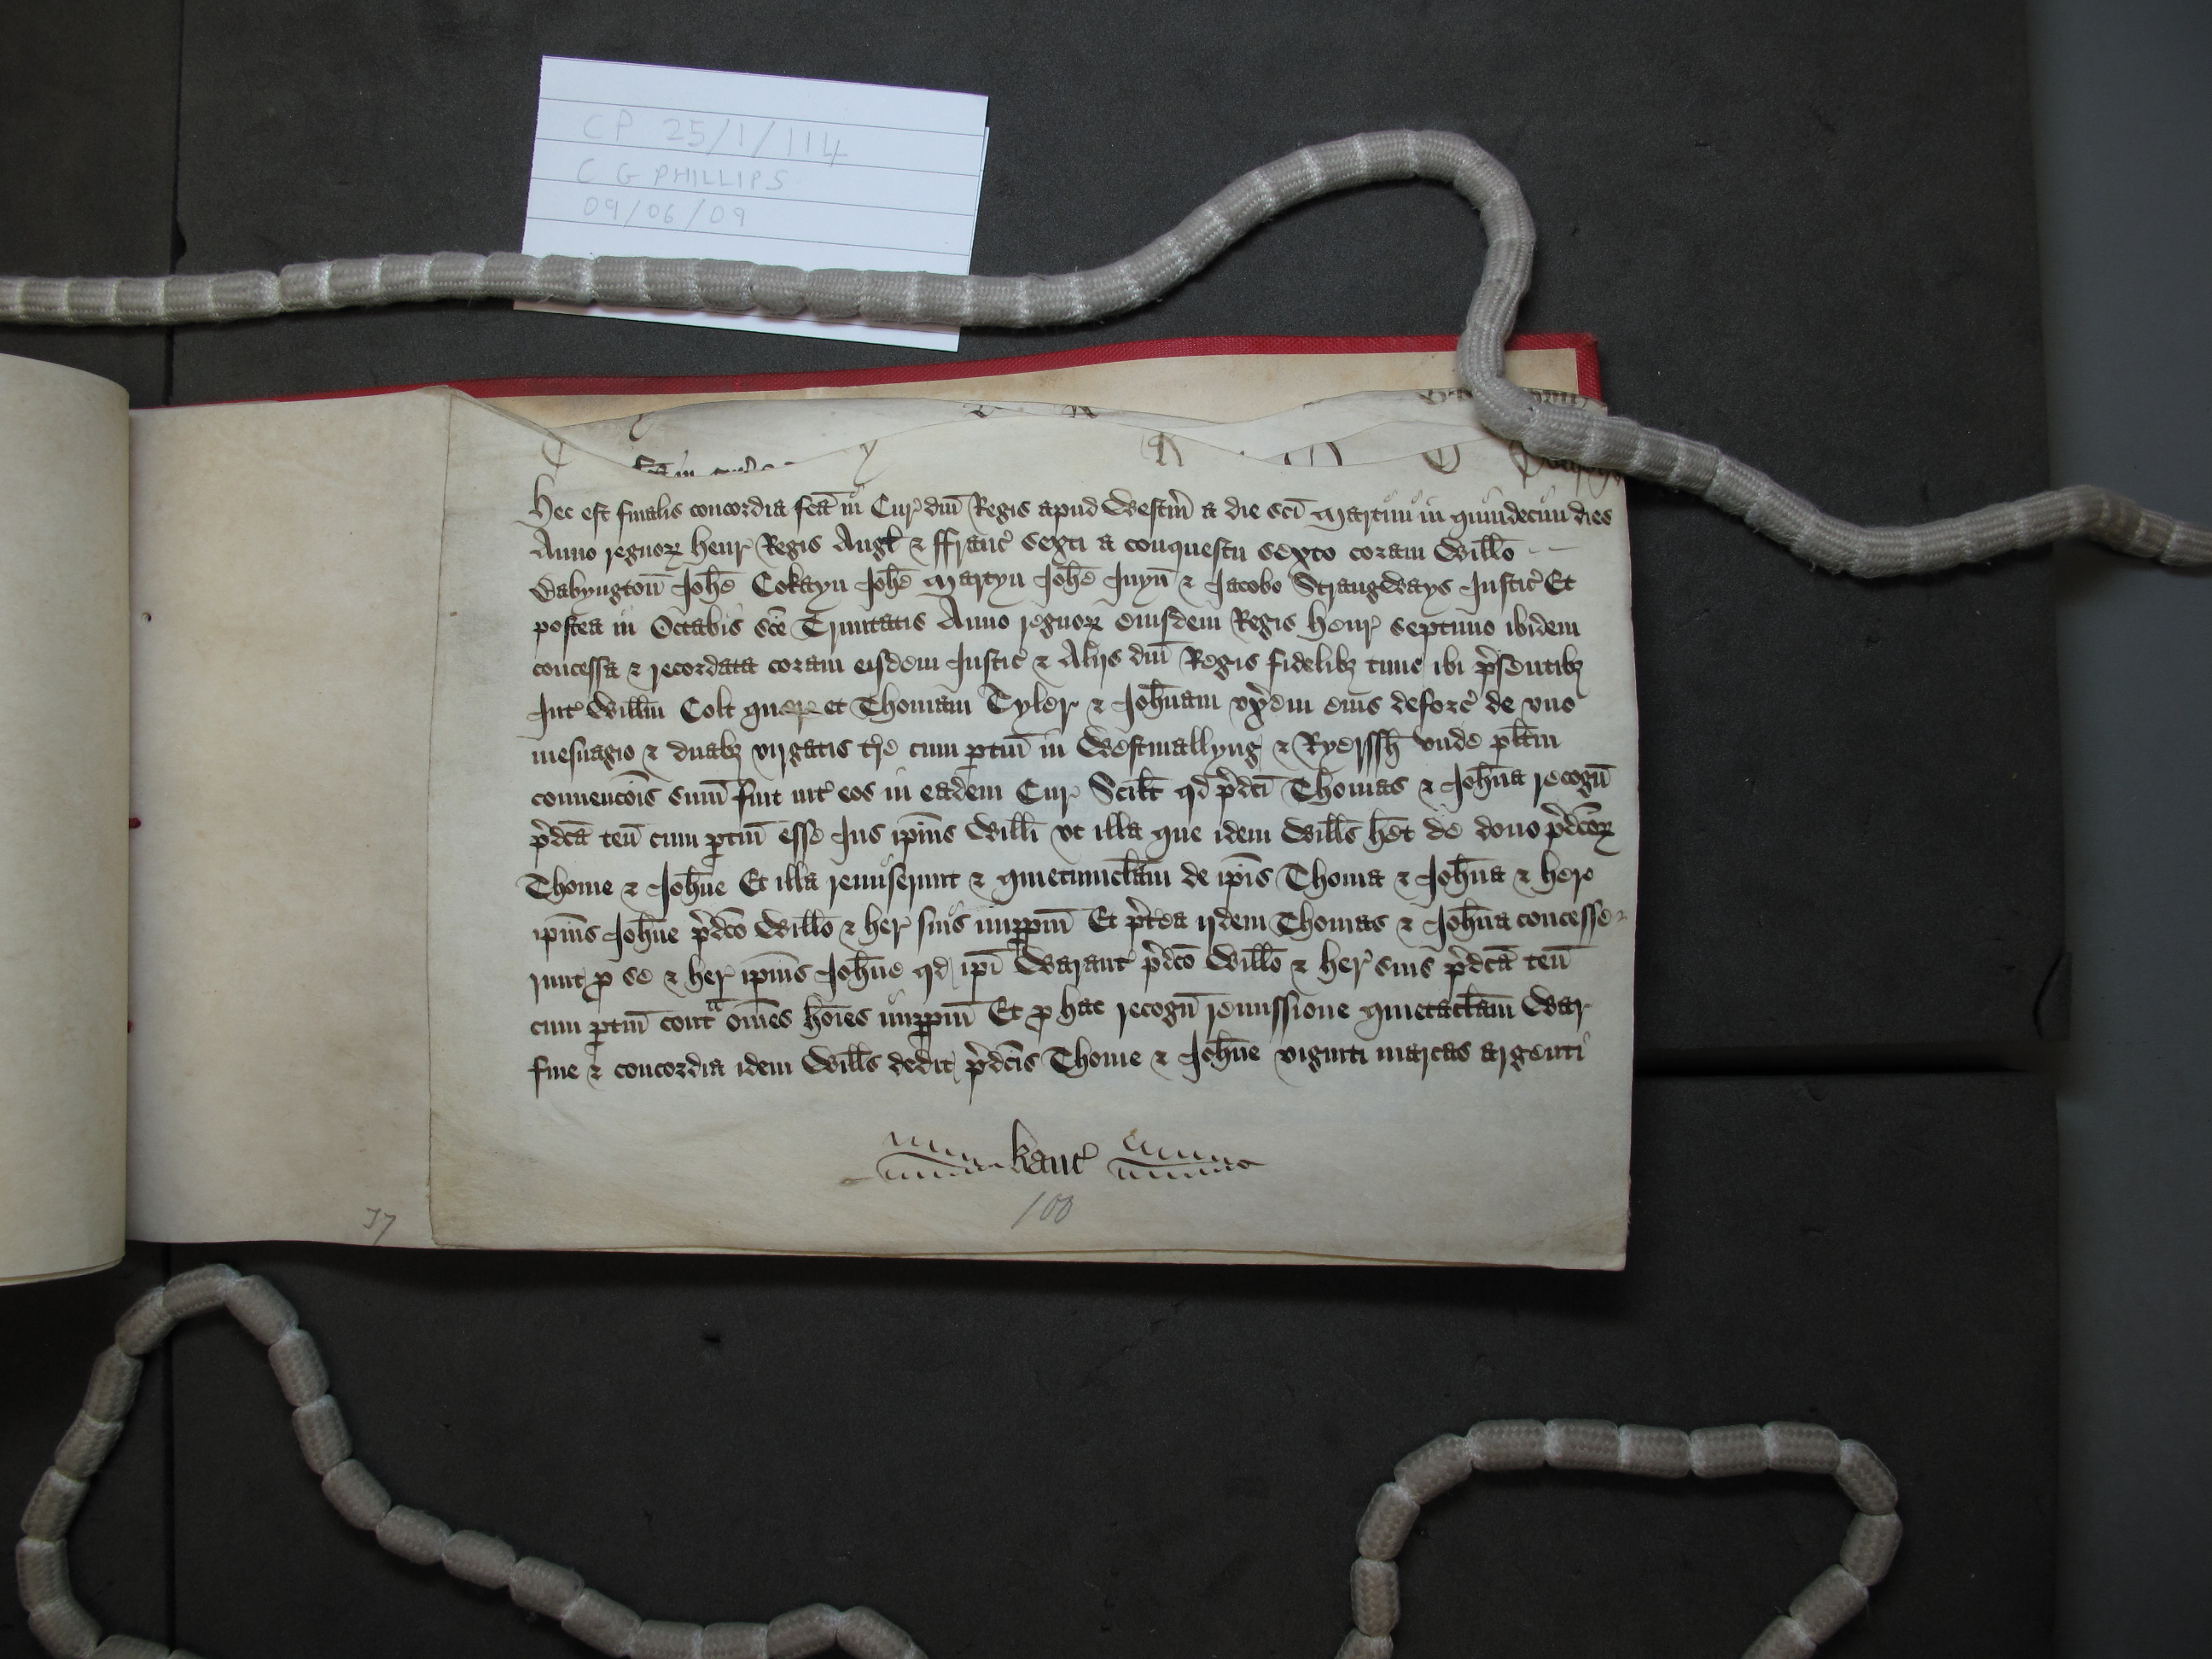 CP 25/1/114
C G PHILLIPS
09/06/09
Hec est finalis concordia fcā in Cur̛ dn̄i Regis apud Westm̄ a die sc̄i Martini in quindecim dies
Anno regnoꝝ Henr̛ Regis Angl̄ ⁊ ffranc̛ sexti a conquestu sexto coram Will̄o
Babyngton̄ Joh̄e Cokayn Joh̄e Martyn Joh̄e Juyn̄ ⁊ Jacobo Strangways Justic̛ Et
postea in Octabis sc̄e Trinitatis Anno regnoꝝ eiusdem Regis Henr̛ septimo ibidem
concessa ⁊ recordata coram eisdem Justic̛ ⁊ Alijs dn̄i Regis fidelibꝫ tunc ibi p̛sentibꝫ
Int̛ Will̄m Colt quer̛ et Thomam Tyler ⁊ Joh̄nam vx̛em eius deforc̛ de vno
mesuagio ⁊ duabꝫ virgatis tr̛e cum ptin̄ in Westmallyng ⁊ Ryerssh̄ vnde pl̄itm
convenc̄ōis sum̄ fuit int̛ eos in eadem Cur̛ Scilt̄ qd p̛dc̄i Thomas ⁊ Joh̄na recogn̄
p̛dc̄a ten̄ cum ptin̄ esse Jus ip̄ius Will̄i vt illa que idem Will̄s h̄et de dono p̛dc̄oꝝ
Thome ⁊ Joh̄ne Et illa remiserunt ⁊ quietumclam̄ de ip̄is Thoma ⁊ Joh̄na ⁊ her̛
ip̄ius Joh̄ne p̛dc̄o Will̄o ⁊ her̛ suis imppm̄ Et p̛tea ijdem Thomas ⁊ Joh̄na concesse-
runt ꝑ se ⁊ her̛ ip̄ius Joh̄ne qd ip̄i Warant̛ p̛dc̄o Will̄o ⁊ her̛ suis p̛dc̄a ten̄
cum ptin̄ contᵃ om̄es ho̅i̅es imppm̄ Et ꝓ hac recogn̄ remissione quietaclam̄ War̛
fine ⁊ concordia idem Will̄s dedit p̛dc̄is Thome ⁊ Joh̄ne viginti marcas argenti
Kanc̛
100
37